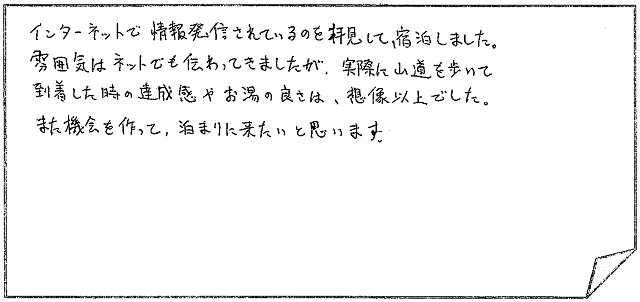 インターネットで情報発信されているのを拝見して、宿泊しました。
雰囲気はネットでも伝わってきましたが、実際に山道を歩いて
到着した時の達成感やお湯の良さは、想像以上でした。
また機会を作って、泊まりに来たいと思います。